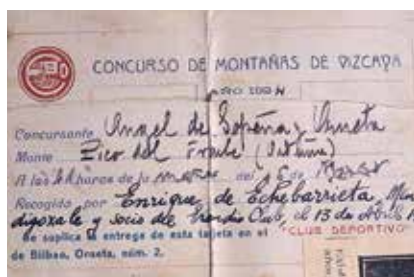 CONCURSO DE MONTAÑAS DE VIZCAYA
AÑO 192
Concursante Angel de Sopeña y
Monte Pico del Fraile
A las horas de la del de
Recogida por Enrique de Echebarrieta, Men
digoxale y socio de Club, el 13 de Abril
Se suplica la entrega de esta tarjeta en el "CLUB DEPORTIVO"
de Bilbao, Orueta, núm. 2.